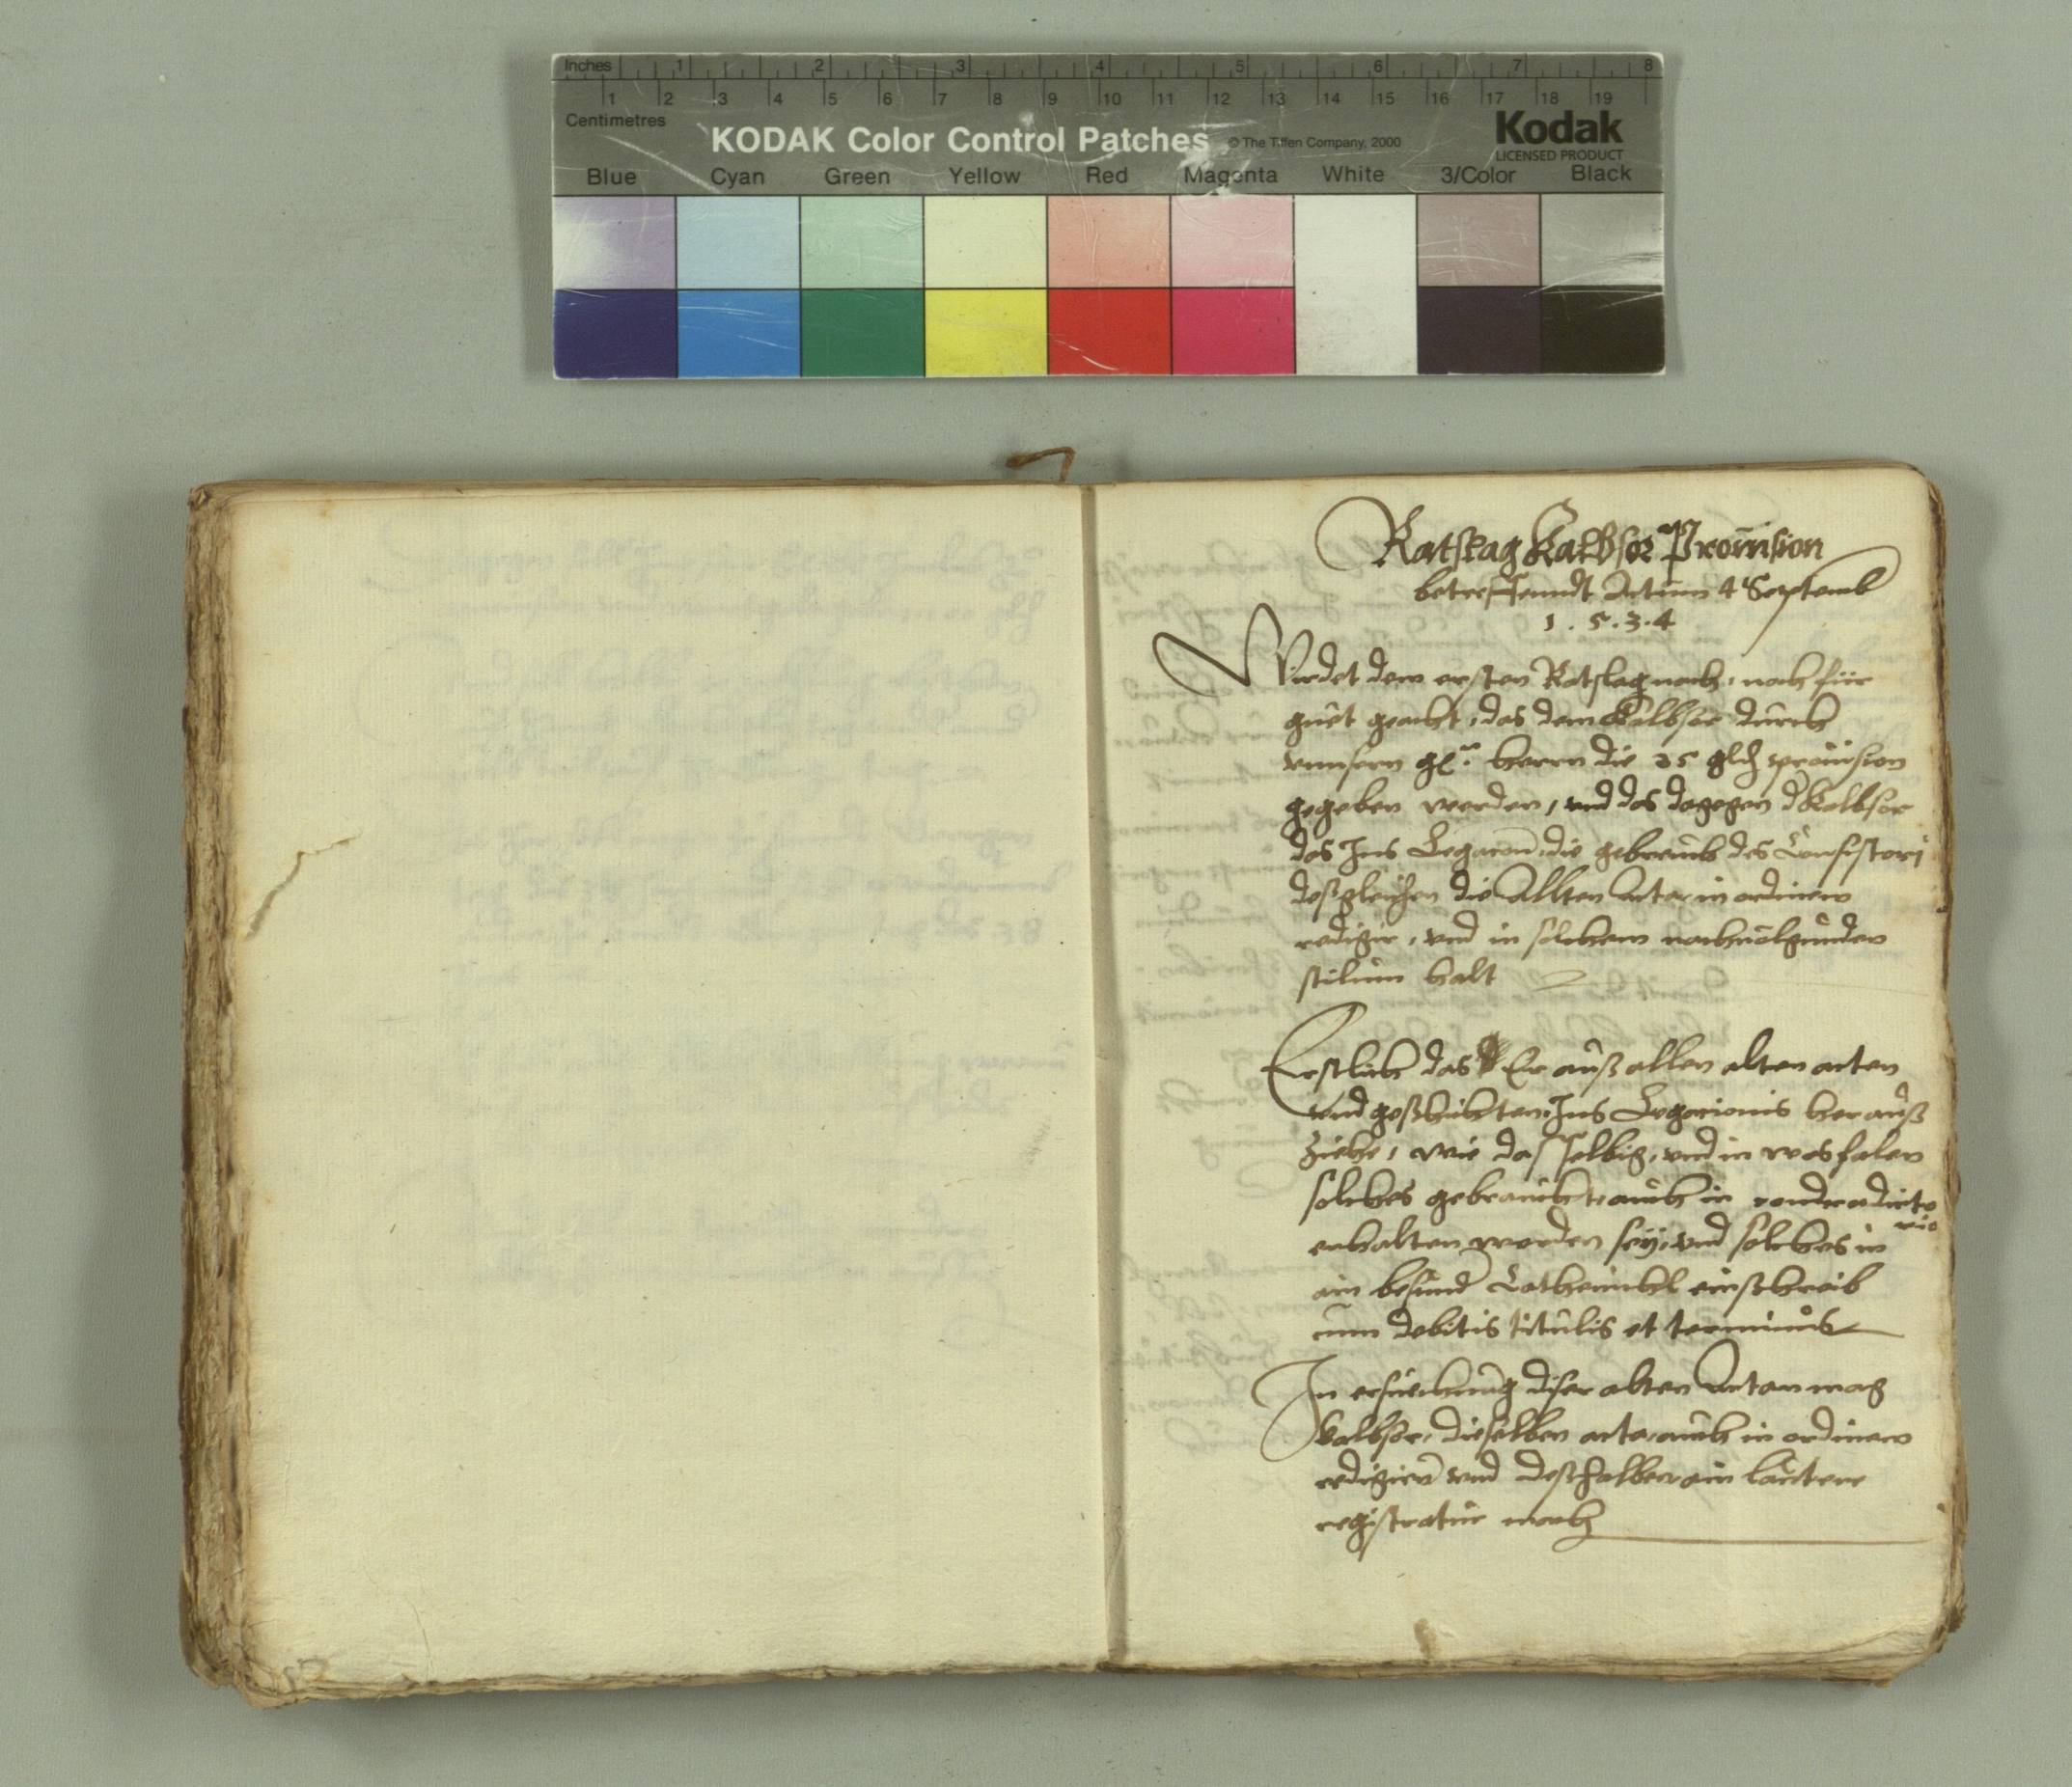 Inches 1 2 3 4 5 6 7 8
1 2 3 4 5 6 7 8 9 10 11 12 13 14 15 16 17 18 19
Centimetres
KODAK Color Control Patches © The Tiffen Company, 2000 Kodak
LICENSED PRODUCT
Blue Cyan Green Yellow Red Magenta White 3/Color Black
Ratslag Kalbsor Provision
betreffenndt Actum 4 Septemb
1.5.3.4
Wirdet dem ersten Ratslag nach, noch für
guet geacht, das dem Kalbsor durch
unnsern gn: herrn die 25 provision
gegeben werden, und das dagegen d Kalbsor
das Jus Legacion, die gebreuch des Consistorj
desgleichen die Allten Acta in ordinem
redigir, und in solchem nachuolgunden
stilum halt
Erstlich das Er auß allen alten acten
und geschichten Jus Legacionis herauß
ziehe, wie dasselbig, und in was falen
solches gebraucht, auch in contradicto
rio
erhalten worden sey, und solches in
ain besund einschreib
cum debitis titulis et terminis
In ersuechung diser alten Acten mag
Kalbsor, dieselben acta, auch in ordinem
redigiern und deßhalben ain lautere
registratur mach